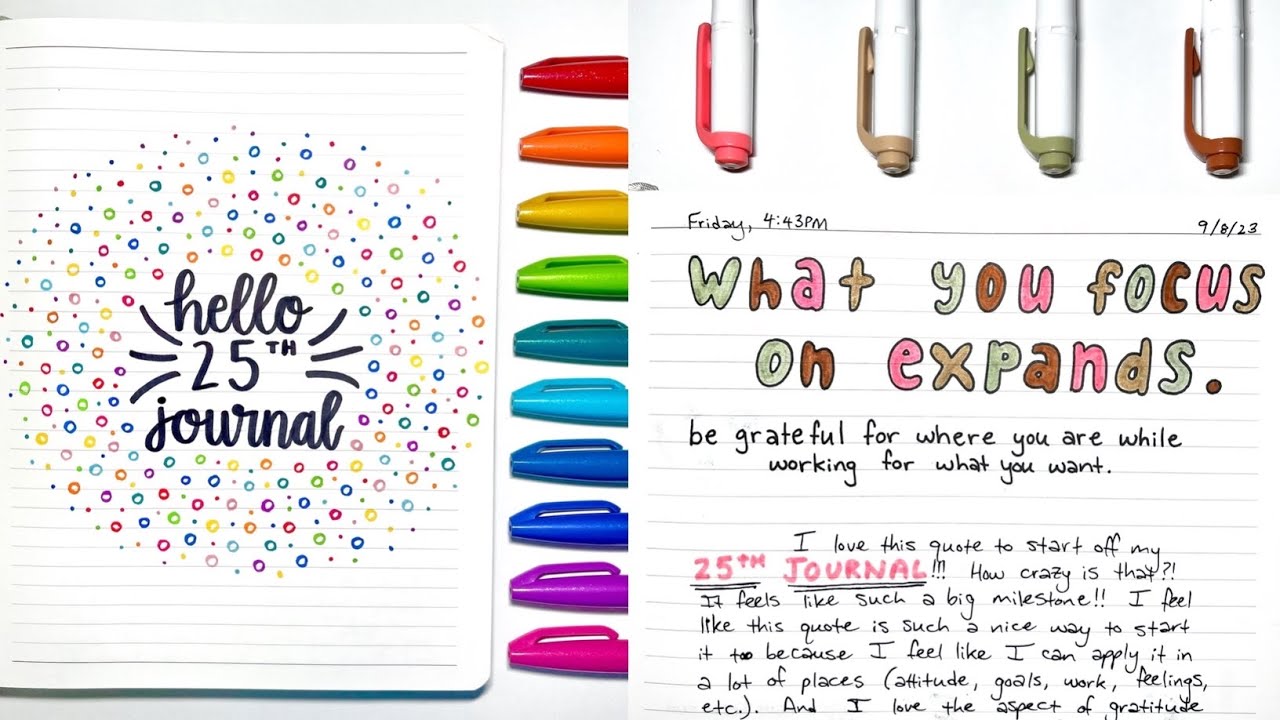 hello
25TH
journal
Friday, 4:43PM
9/8/23
what you focus
on expands.
be grateful for where you are while
working for what you want.
I love this quote to start off my
25TH JOURNAL!!! How crazy is that?!
It feels like such a big milestone!! I feel
like this quote is such a nice way to start
it too because I feel like I can apply it in
a lot of places (attitude, goals, work, feelings,
etc.). And I love the aspect of gratitude